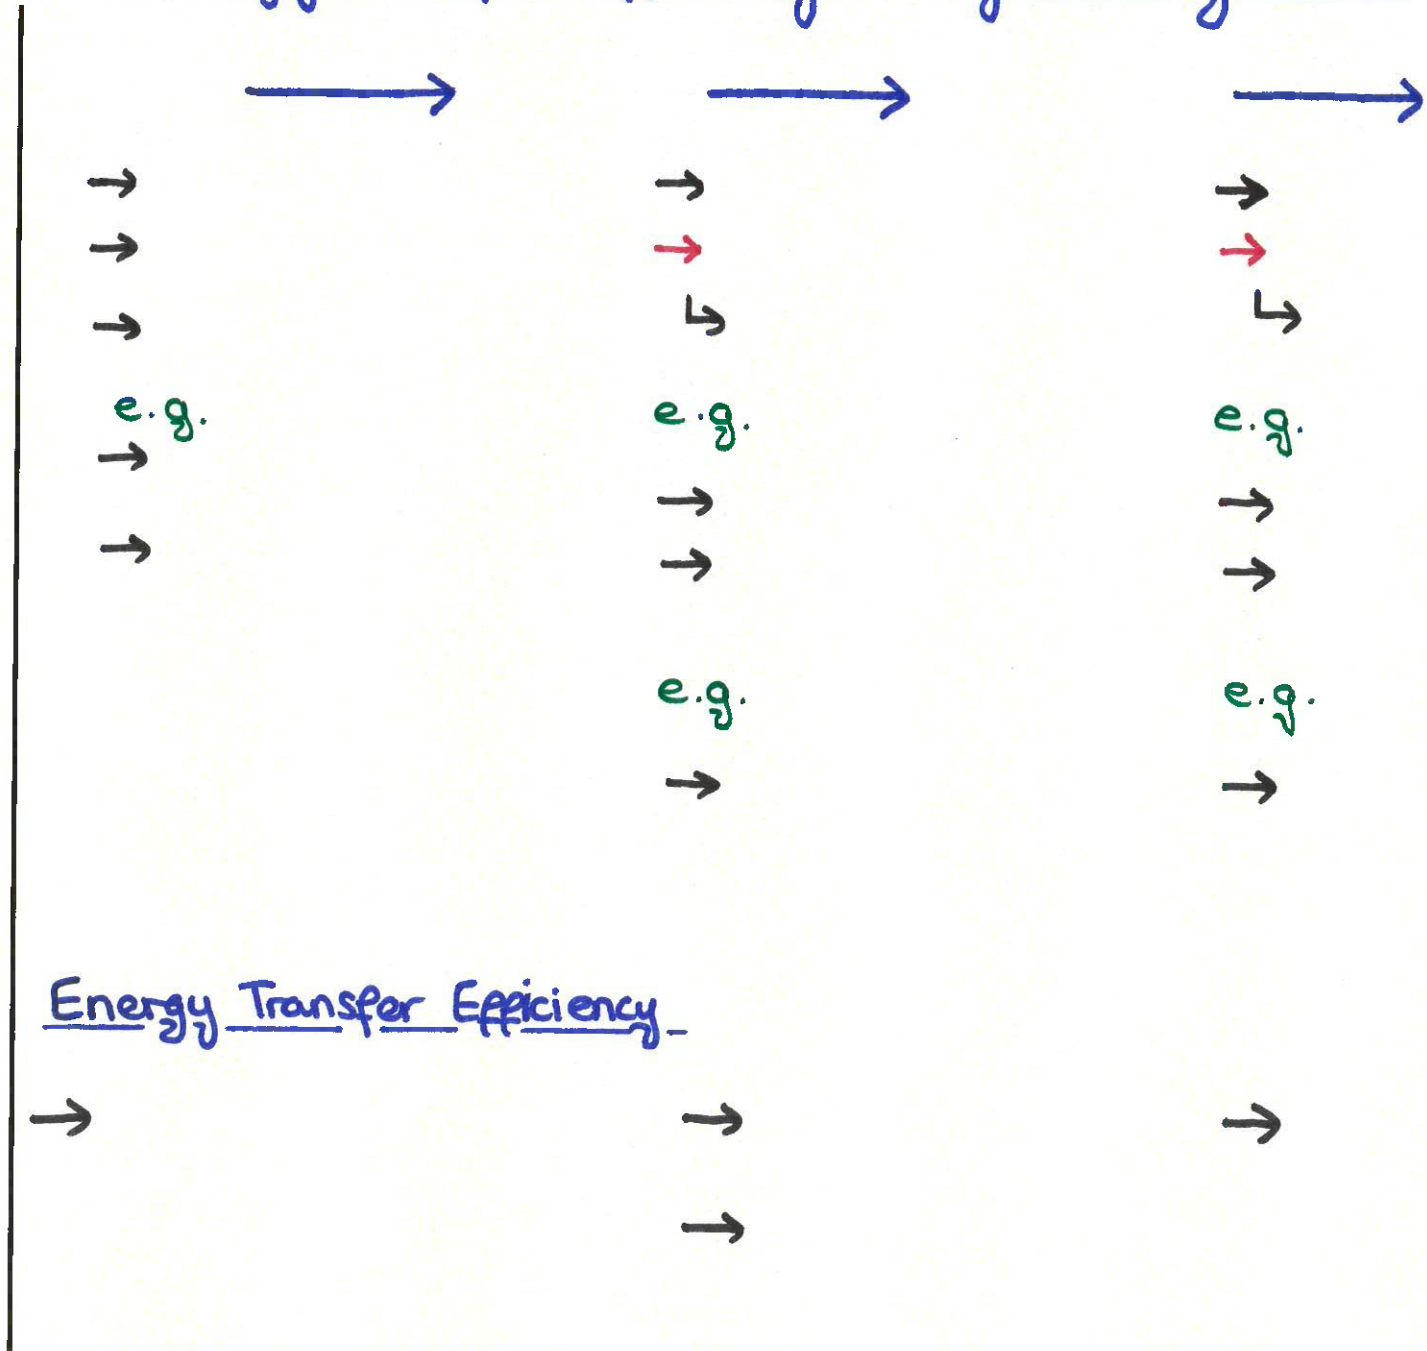 e.g. e.g. e.g.
e.g. e.g.
Energy Transfer Efficiency